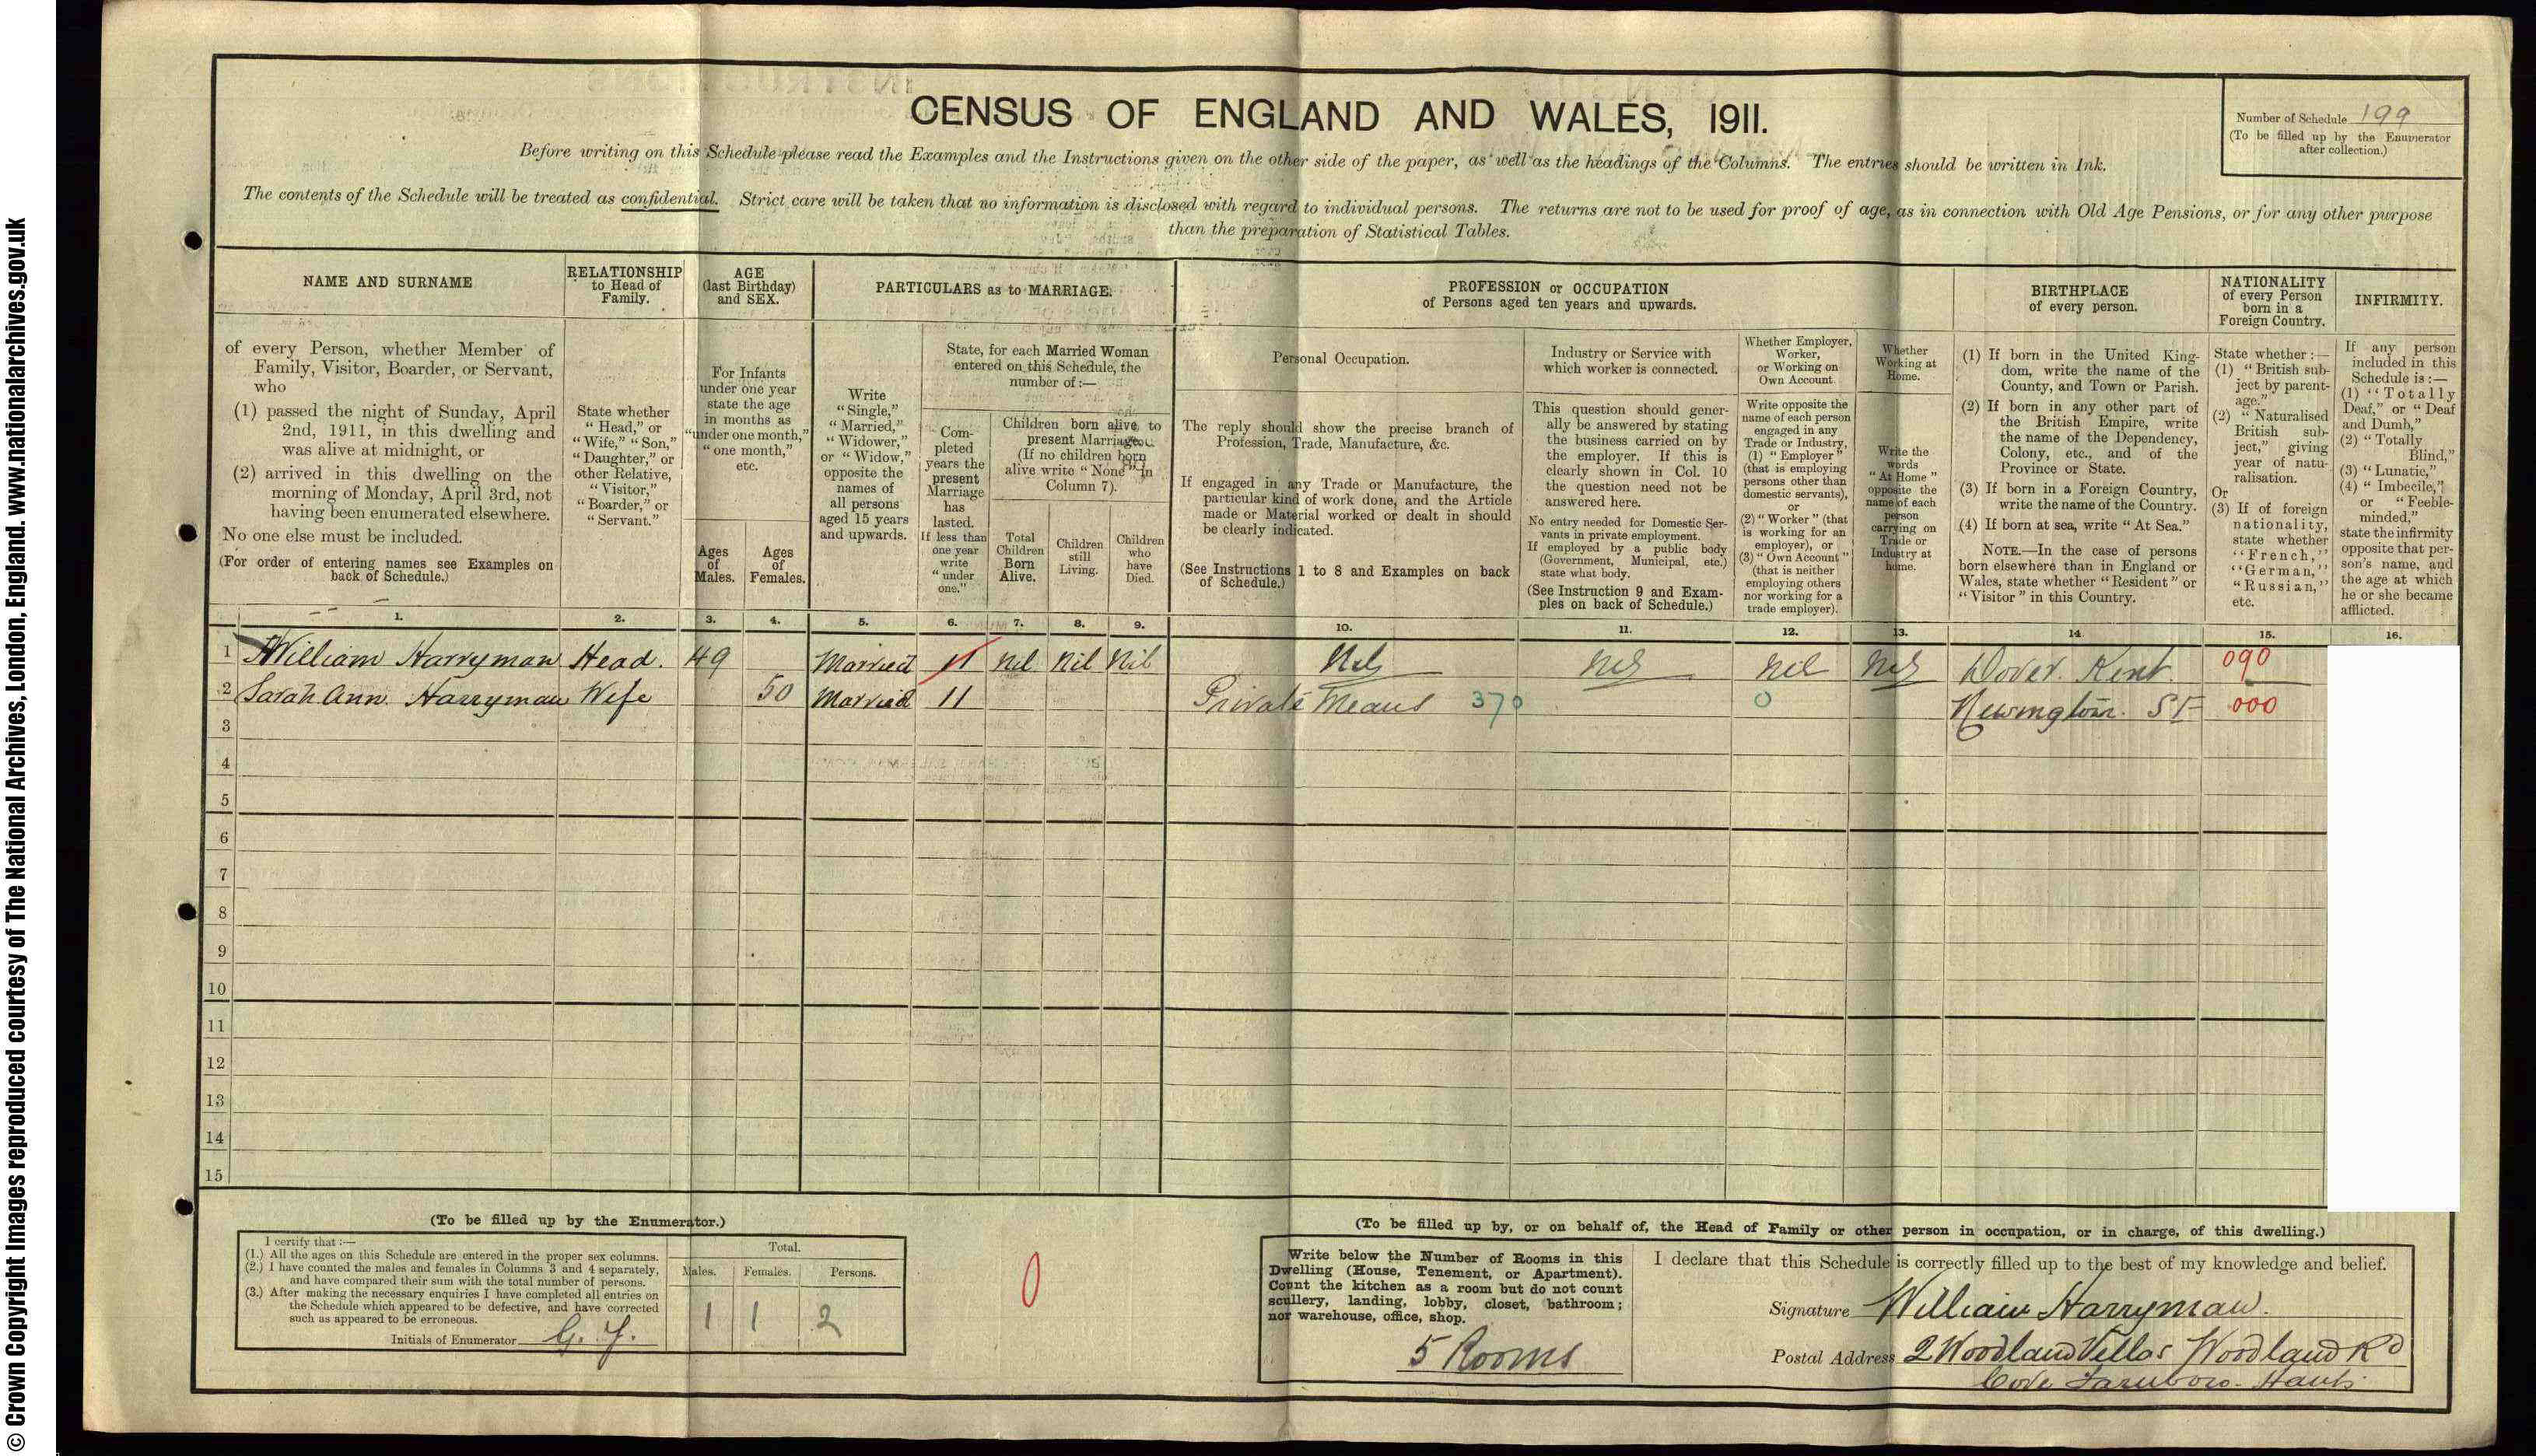 © Crown Copyright Images reproduced courtesy of The National Archives, London, England. www.nationalarchives.gov.uk
CENSUS OF ENGLAND AND WALES, 1911.
Number of Schedule 199
(To be filled up by the Enumerator
after collection.)
Before writing on this Schedule please read the Examples and the Instructions given on the other side of the paper, as well as the headings of the Columns. The entries should be written in Ink.
The contents of the Schedule will be treated as confidential. Strict care will be taken that no information is disclosed with regard to individual persons. The returns are not to be used for proof of age, as in connection with Old Age Pensions, or for any other purpose
than the preparation of Statistical Tables.
NAME AND SURNAME
of every Person, whether Member of
Family, Visitor, Boarder, or Servant,
who
(1) passed the night of Sunday, April
2nd, 1911, in this dwelling and
was alive at midnight, or
(2) arrived in this dwelling on the
morning of Monday, April 3rd, not
having been enumerated elsewhere.
No one else must be included.
(For order of entering names see Examples on
back of Schedule.)
RELATIONSHIP
to Head of
Family.
State whether
"Head," or
"Wife," "Son,"
"Daughter," or
other Relative,
"Visitor,"
"Boarder," or
"Servant."
AGE
(last Birthday)
and SEX.
For Infants
under one year
state the age
in months as
"under one month,"
"one month,"
etc.
Ages
of
Males.
Ages
of
Females.
PARTICULARS as to MARRIAGE.
Write
"Single,"
"Married,"
"Widower,"
or "Widow,"
opposite the
names of
all persons
aged 15 years
and upwards.
State, for each Married Woman
entered on this Schedule, the
number of:—
Com-
pleted
years the
present
Marriage
has
lasted.
If less than
one year
write
"under
one."
Children born alive to
present Marriage.
(If no children born
alive write "None" in
Column 7).
Total
Children
Born
Alive.
Children
still
Living.
Children
who
have
Died.
PROFESSION or OCCUPATION
of Persons aged ten years and upwards.
Personal Occupation.
The reply should show the precise branch of
Profession, Trade, Manufacture, &c.
If engaged in any Trade or Manufacture, the
particular kind of work done, and the Article
made or Material worked or dealt in should
be clearly indicated.
(See Instructions 1 to 8 and Examples on back
of Schedule.)
Industry or Service with
which worker is connected.
This question should gener-
ally be answered by stating
the business carried on by
the employer. If this is
clearly shown in Col. 10
the question need not be
answered here.
No entry needed for Domestic Ser-
vants in private employment.
If employed by a public body
(Government, Municipal, etc.)
state what body.
(See Instruction 9 and Exam-
ples on back of Schedule.)
Whether Employer,
Worker,
or Working on
Own Account.
Write opposite the
name of each person
engaged in any
Trade or Industry,
(1) "Employer"
(that is employing
persons other than
domestic servants),
or
(2) "Worker" (that
is working for an
employer), or
(3) "Own Account"
(that is neither
employing others
nor working for a
trade employer).
Whether
Working at
Home.
Write the
words
"At Home"
opposite the
name of each
person
carrying on
Trade or
Industry at
home.
BIRTHPLACE
of every person.
(1) If born in the United King-
dom, write the name of the
County, and Town or Parish.
(2) If born in any other part of
the British Empire, write
the name of the Dependency,
Colony, etc., and of the
Province or State.
(3) If born in a Foreign Country,
write the name of the Country.
(4) If born at sea, write "At Sea."
NOTE.—In the case of persons
born elsewhere than in England or
Wales, state whether "Resident" or
"Visitor" in this Country.
NATIONALITY
of every Person
born in a
Foreign Country.
State whether:—
(1) "British sub-
ject by parent-
age."
(2) "Naturalised
British sub-
ject," giving
year of natu-
ralisation.
Or
(3) If of foreign
nationality,
state whether
"French,"
"German,"
"Russian,"
etc.
INFIRMITY.
If any person
included in this
Schedule is:—
(1) "Totally
Deaf," or "Deaf
and Dumb,"
(2) "Totally
Blind,"
(3) "Lunatic,"
(4) "Imbecile,"
or "Feeble-
minded,"
state the infirmity
opposite that per-
son's name, and
the age at which
he or she became
afflicted.
1. 2. 3. 4. 5. 6. 7. 8. 9. 10. 11. 12. 13. 14. 15. 16.
1 William Harryman Head. 49 Married 11 Nil Nil Nil Nil Nil Nil Nil Dover. Kent. 090
2 Sarah Ann. Harryman Wife 50 Married 11 Private Means 370 0 Newington. 000
3
4
5
6
7
8
9
10
11
12
13
14
15
(To be filled up by the Enumerator.)
I certify that:—
(1.) All the ages on this Schedule are entered in the proper sex columns.
(2.) I have counted the males and females in Columns 3 and 4 separately,
and have compared their sum with the total number of persons.
(3.) After making the necessary enquiries I have completed all entries on
the Schedule which appeared to be defective, and have corrected
such as appeared to be erroneous.
Initials of Enumerator G. Y.
Total.
Males. Females. Persons.
1 1 2
0
(To be filled up by, or on behalf of, the Head of Family or other person in occupation, or in charge, of this dwelling.)
Write below the Number of Rooms in this
Dwelling (House, Tenement, or Apartment).
Count the kitchen as a room but do not count
scullery, landing, lobby, closet, bathroom;
nor warehouse, office, shop.
5 Rooms
I declare that this Schedule is correctly filled up to the best of my knowledge and belief.
Signature William Harryman.
Postal Address 2 Woodland Villas Woodland Rd
Cove Farnboro. Hants.